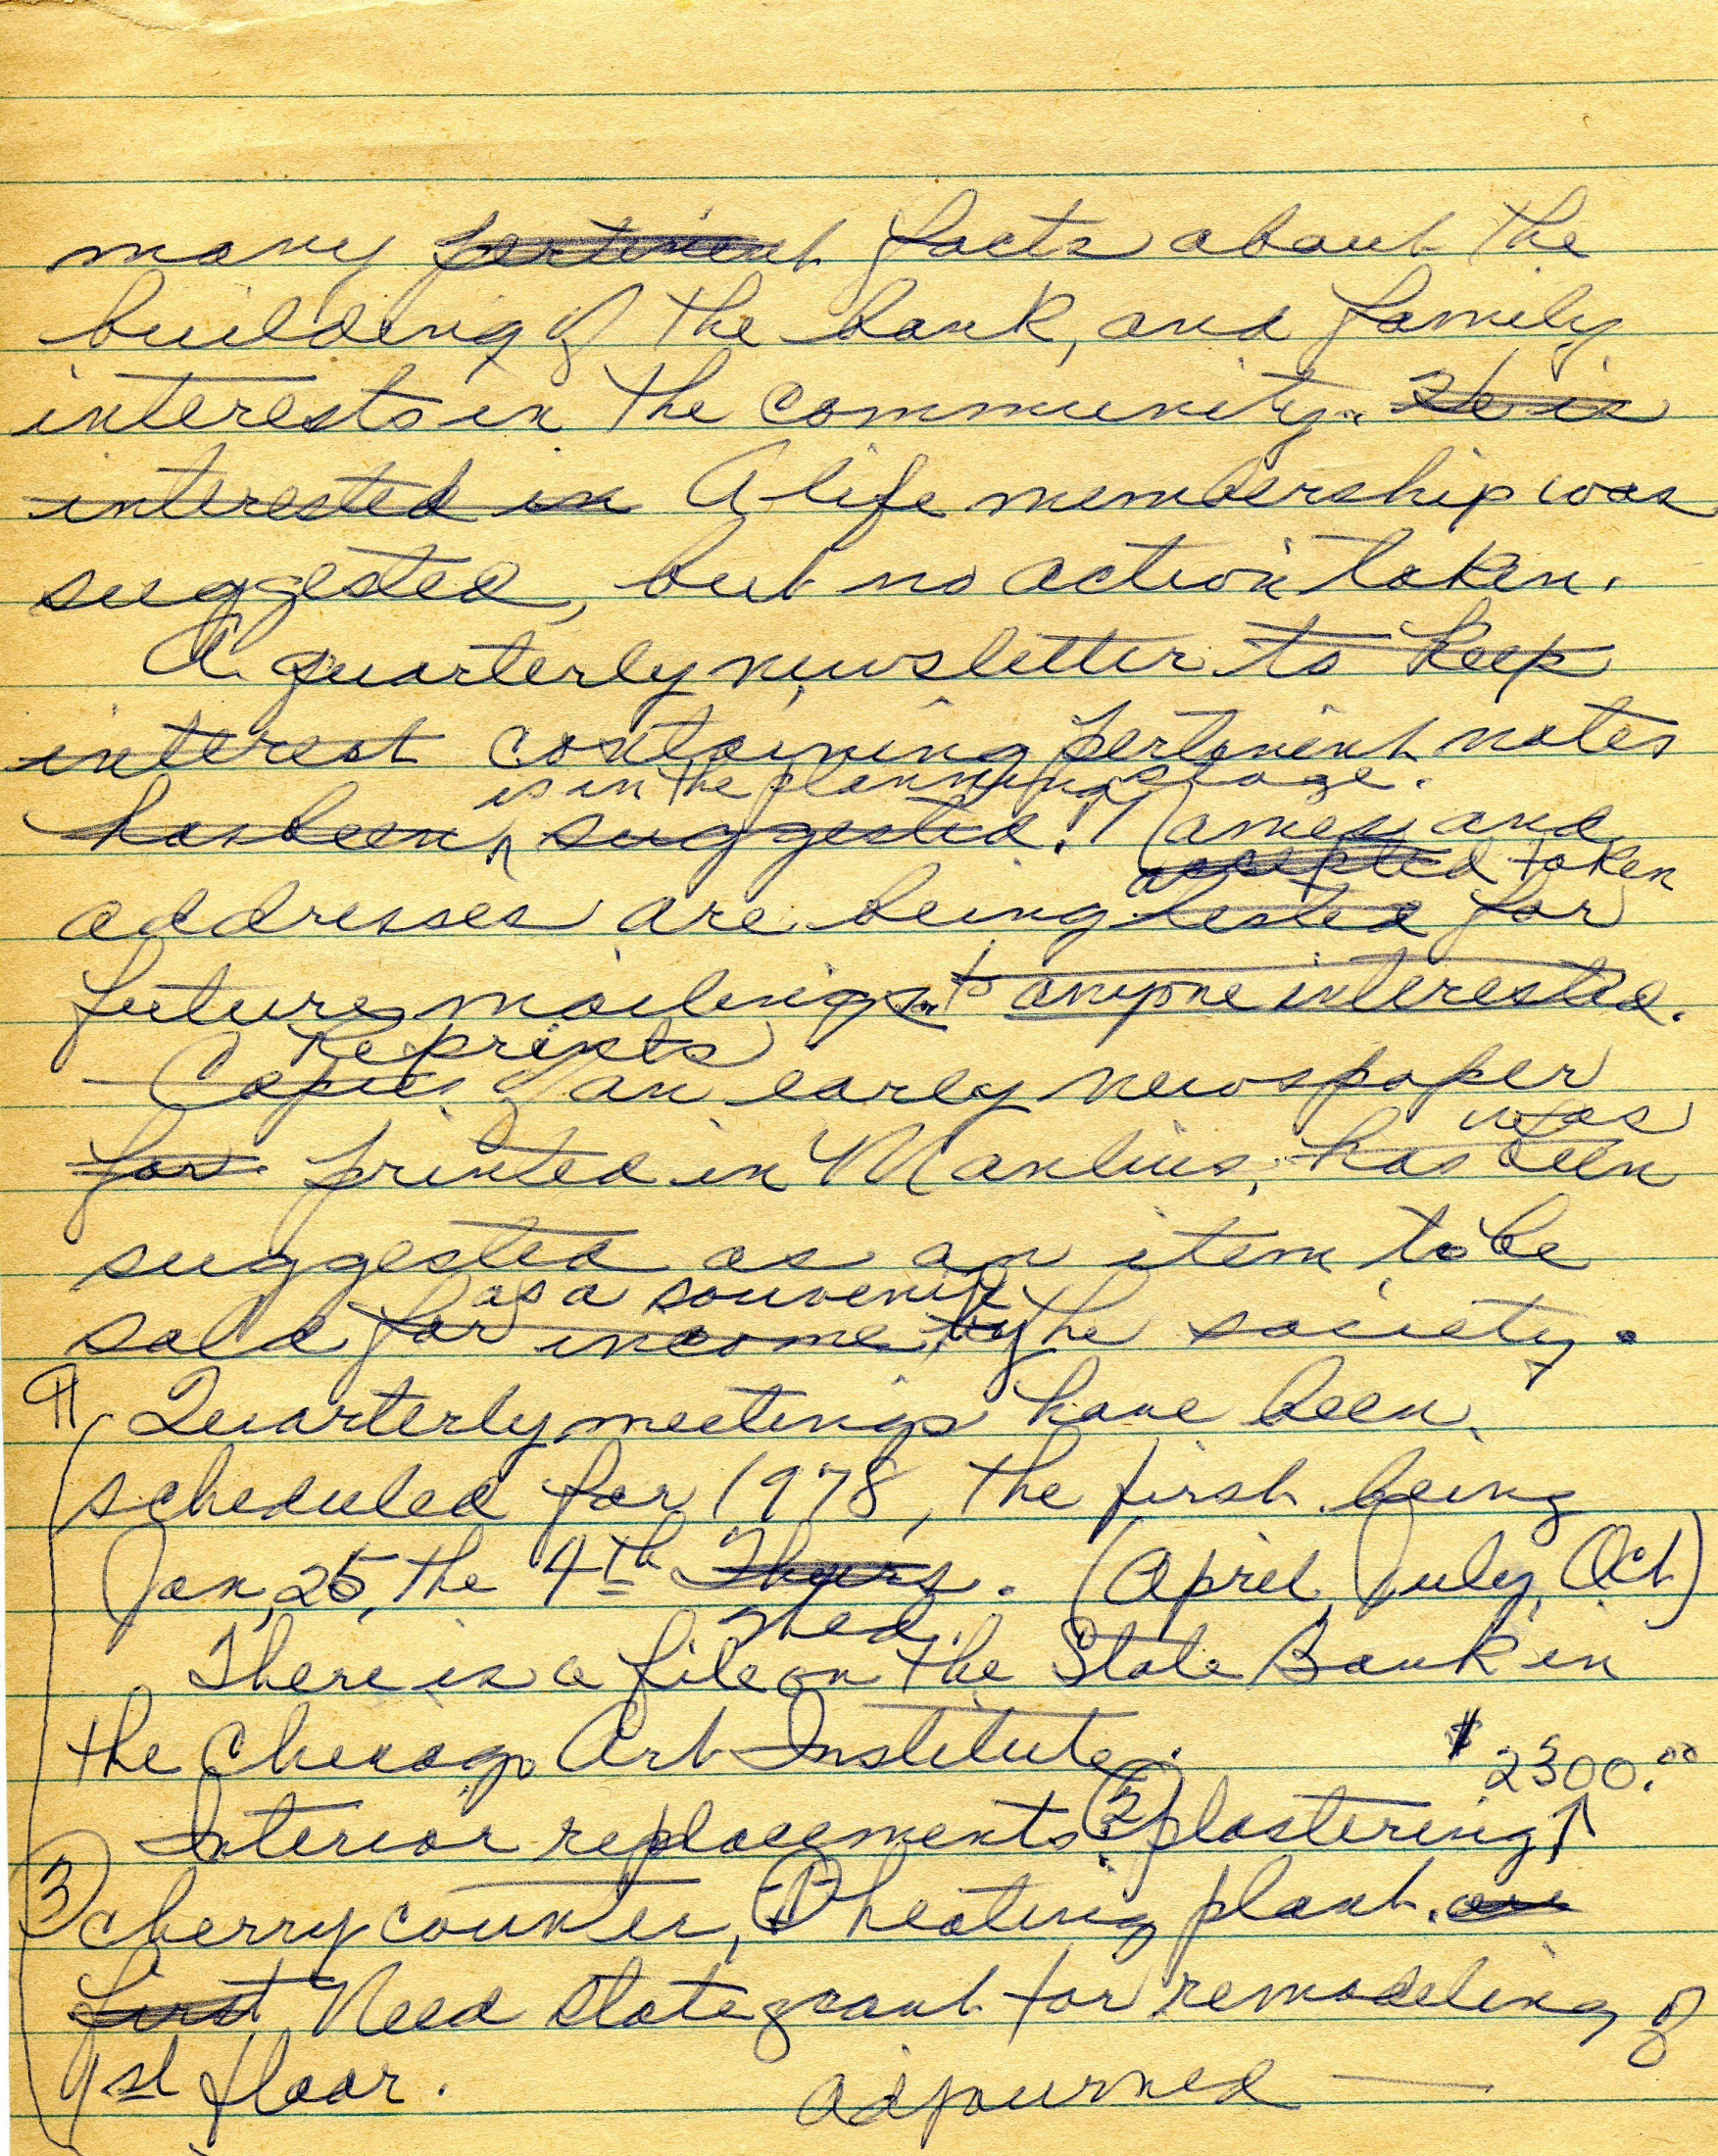 many pertinent facts about the
building of the bank, and family
interests in the community. He is
interested in A life membership was
suggested, but no action taken.
A quarterly newsletter to keep
interest containing pertinent notes
is in the planning stage.
has been ^ suggested. Names and
accepted taken
addresses are being listed for
future mailings to anyone interested.
Reprints
Copies of an early newspaper
was
for printed in Manlius, has been
suggested as an item to be
as a souvenir
sold for income by the society.
¶ Quarterly meetings have been
scheduled for 1978, the first being
Jan, 25, the 4th Thurs. (April, July, Oct)
Wed.
There is a file on the State Bank in
the Chicago Art Institute.
$2300.00
Interior replacements: ② plastering ↑
③ cherry counter, ① heating plant. are
first Need state grant for remodeling of
1st floor. adjourned —